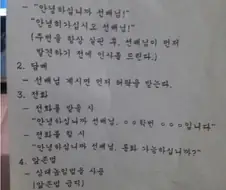 - "안녕하십니까 선배님!"
"안녕히가십시오 선배님!"
(주변을 항상 살핀 후, 선배님이 먼저
발견하기 전에 인사를 드린다.)
2. 담배
- 선배님 계시면 먼저 허락을 받는다.
3. 전화
- 전화를 받을 시
"안녕하십니까 선배님. ==학번 ===입니다"
- 전화를 할 시
"안녕하십니까 선배님. 통화 가능하십니까?"
4. 압존법
- 상대높임법을 사용
(압존법 금지)